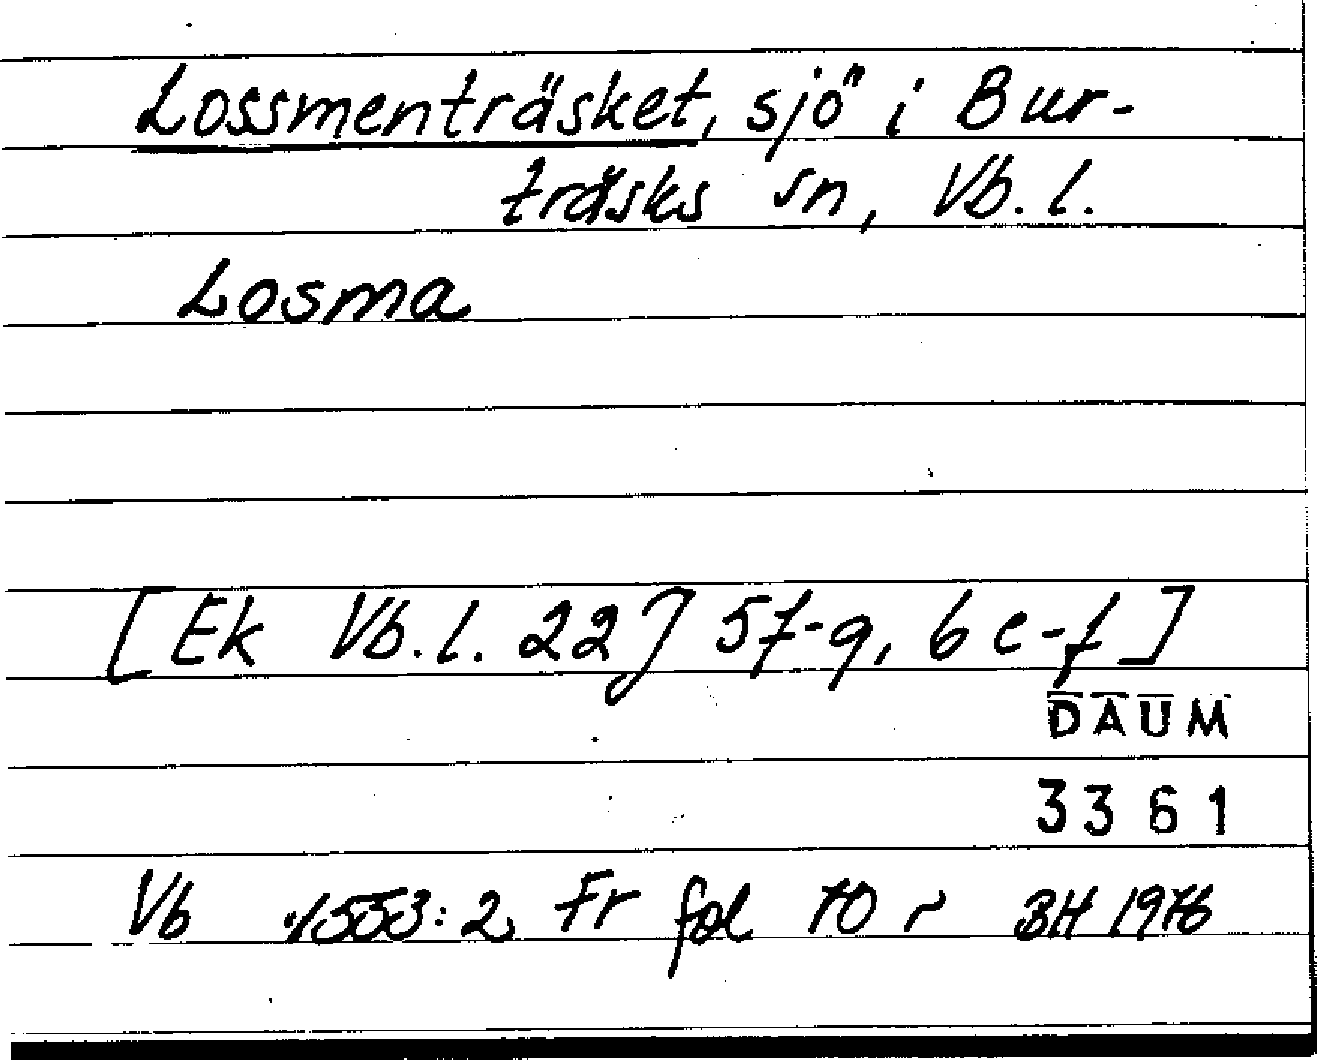 Lossmenträsket, sjö i Bur-
träsks sn, Vb. l.
Losma
[Ek Vb. l. 22J 5f-g, 6e-f]
DAUM
3361
Vb 1553:2 Fr fol 10 r BH 1976